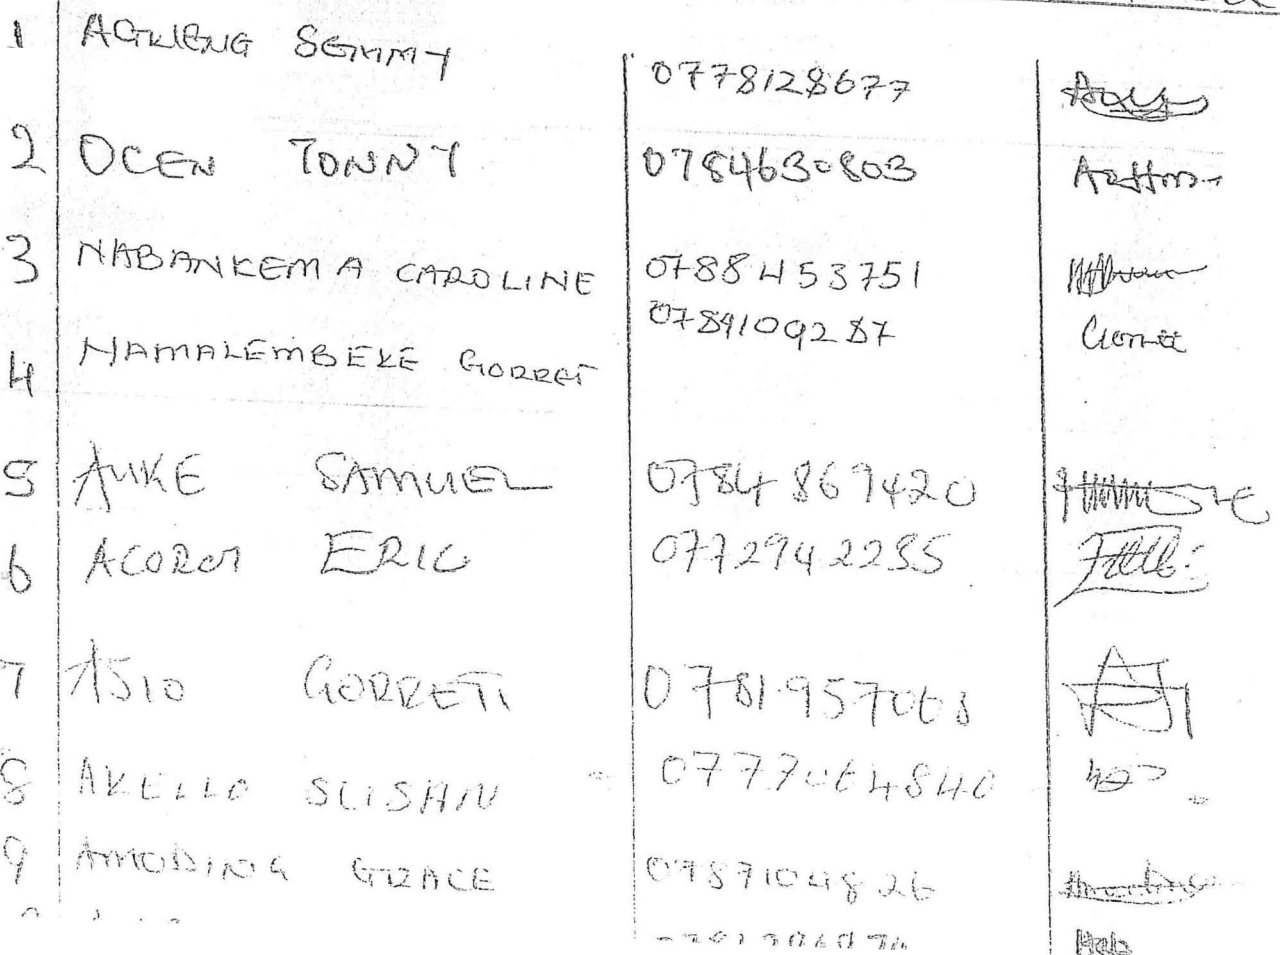 1 AGWENG SEMMY 0778128677
2 OCEN TONNY 0784630803
3 NABANKEMA CAROLINE 0788453751
4 NAMALEMBEKE GORRET 0789109287
5 AUKE SAMUEL 0784869420
6 ACOROT ERIC 0772942235
7 ASIO GORRETI 0781957068
8 AKELLO SUSHAN 0777064840
9 AMODING GRACE 0787104826